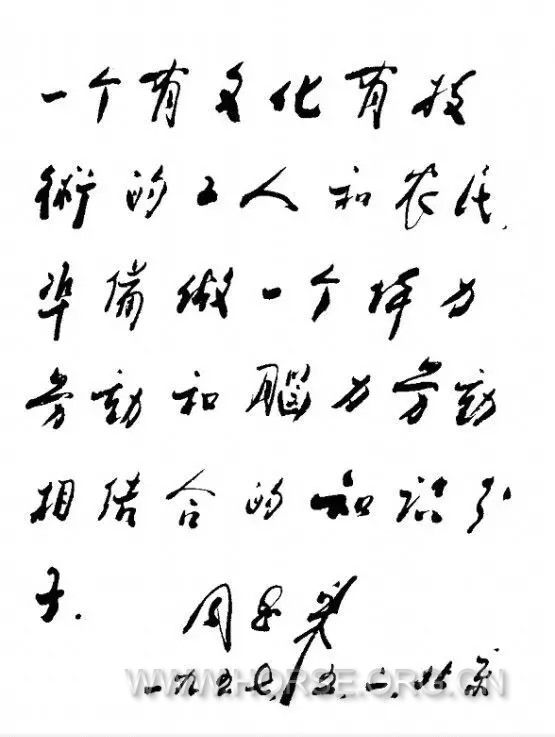 一个有文化有技
術的工人和农民,
準備做一个体力
劳动和腦力劳动
相结合的知识分
子.
周恩来
一九五七,五,二,北京
WWW.HORSE.ORG.CN